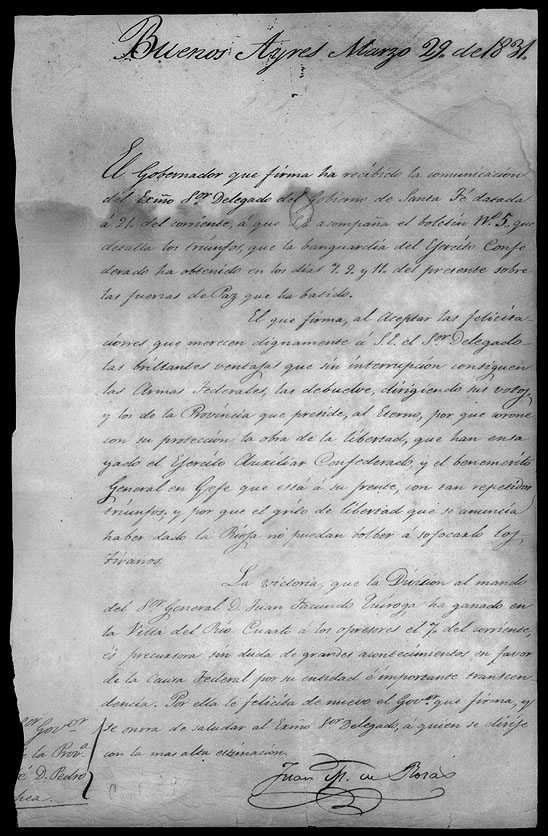 Buenos Ayres Marzo 29. de 1831.
El Gobernador que firma ha recibido la comunicacion
del Exmo Sor Delegado del Gobierno de Santa Fé datada
á 21. del corriente, á que acompaña el boletin No 5. que
detalla los triunfos, que la banguardia del Ejercito Confe
derado ha obtenido en los dias 7. 9. y 11. del presente sobre
las fuerzas de Paz que ha batido.
El que firma, al Aceptar las felicita
ciones que merecen dignamente á S.E. el Sor Delegado
las brillantes ventajas que sin interrupcion consiguen
las Armas Federales, las debuelve, dirigiendo sus votos,
y los de la Provincia que preside, al Eterno, por que corone
con su proteccion la obra de la libertad, que han ensa
yado el Ejercito Auxiliar Confederado, y el benemerito
General en Gefe que está á su frente, con tan repetidos
triunfos, y por que el grito de libertad que se anuncia
haber dado la Rioja no puedan bolber á sofocarlo los
tiranos.
La victoria, que la Division al mando
del Sor General D. Juan Facundo Quiroga ha ganado en
la Villa del Rio Cuarto á los opresores el 7. del corriente,
és precursora sin duda de grandes acontecimientos en favor
de la Causa Federal por su entidad é importante transcen
dencia. Por ella le felicita de nuevo el Govor que firma, y
se onrra de saludar al Exmo Sor Delegado, á quien se dirije
con la mas alta estimacion.
Juan M. de Rosas
Sor Govor
la Prova
é D. Pedro